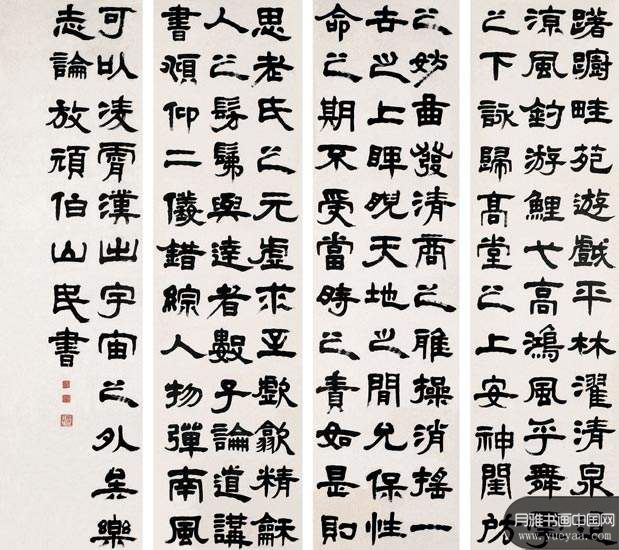 躇躕畦苑遊戲平林濯清泉
涼風釣游鯉弋高鴻風乎舞
之下詠歸高堂之上安神閨房
之妙曲發清商之雅操消搖一
古之上睥睨天地之閒允保性
命之期不受當時之責如是則
思老氏之元虛求至歑歙精龢
人之髣髴與達者數子論道講
書頫仰二儀錯綜人物彈南風
可以凌霄漢出宇宙之外矣樂
志論放頑伯山民書
月雅书画中国网
www.yueyaa.com